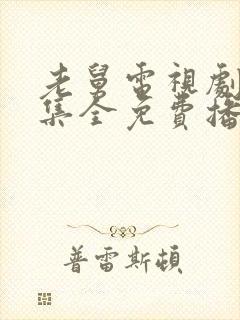 老舅電視劇
集全免費播
普雷斯頓